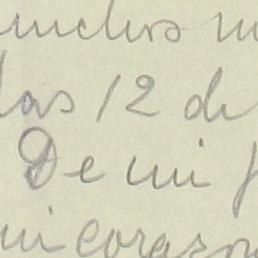 muchos
las 12 de
De mi
mi corazon